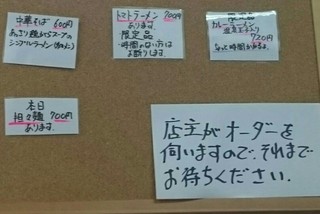 中華そば 600円
あっさり鶏がらスープの
シンプルラーメン
トマトラーメン 700円
あります。
限定品
時間のない方は
お断りします。
限定品
カレーラーメン
温玉入り
720円
本日
担々麺 700円
あります。
店主がオーダーを
伺いますので、それまで
お待ちください。